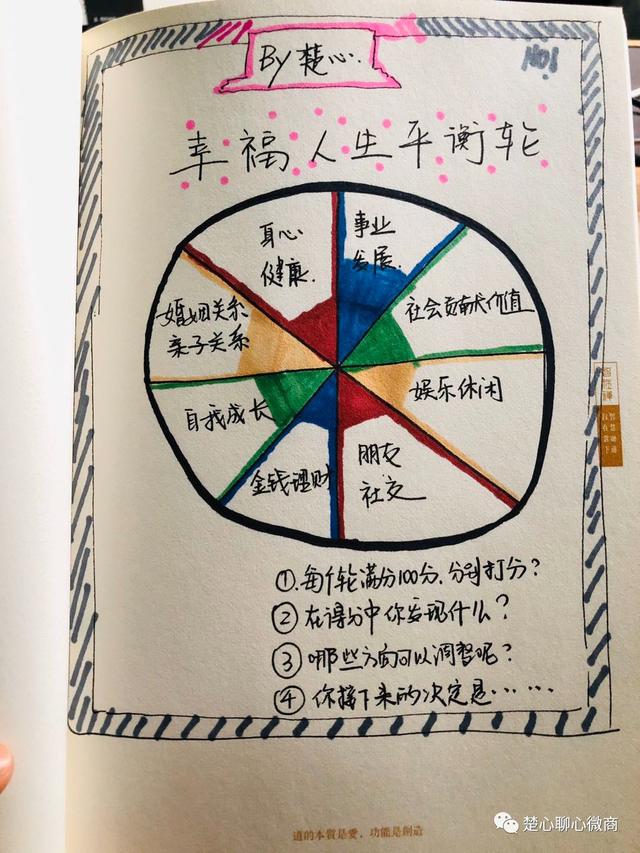 By 楚心.
No.1
幸福人生平衡轮
身心
健康.
事业
发展.
社会贡献价值
娱乐休闲
朋友
社交
金钱理财
自我成长
婚姻关系
亲子关系
①.每个轮满分100分.分别打分?
②在得分中你发现什么?
③哪些方面可以调整呢?
④你接下来的决定是……
道的本質是愛，功能是創造
楚心聊心微商